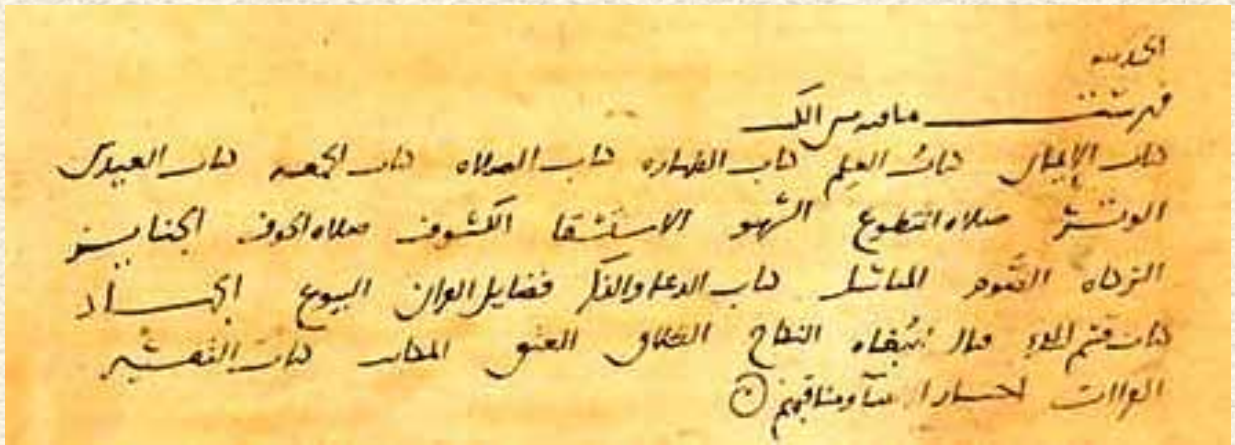 الحمد لله
فهرست ما فيه من الكتب
كتاب الإيمان كتاب العلم كتاب الطهارة كتاب الصلاه كتاب الجمعه كتاب العيدين
الوتر صلاه التطوع السهو الاستسقا الكسوف صلاه الخوف الجنايز
الزكاه الصوم المناسك كتاب الدعا والذكر فضايل القران البيوع الجهاد
كتاب قسم الفيء النكاح الطلاق العتق المكاتب كتاب التفسير
القراات ومناقبهم